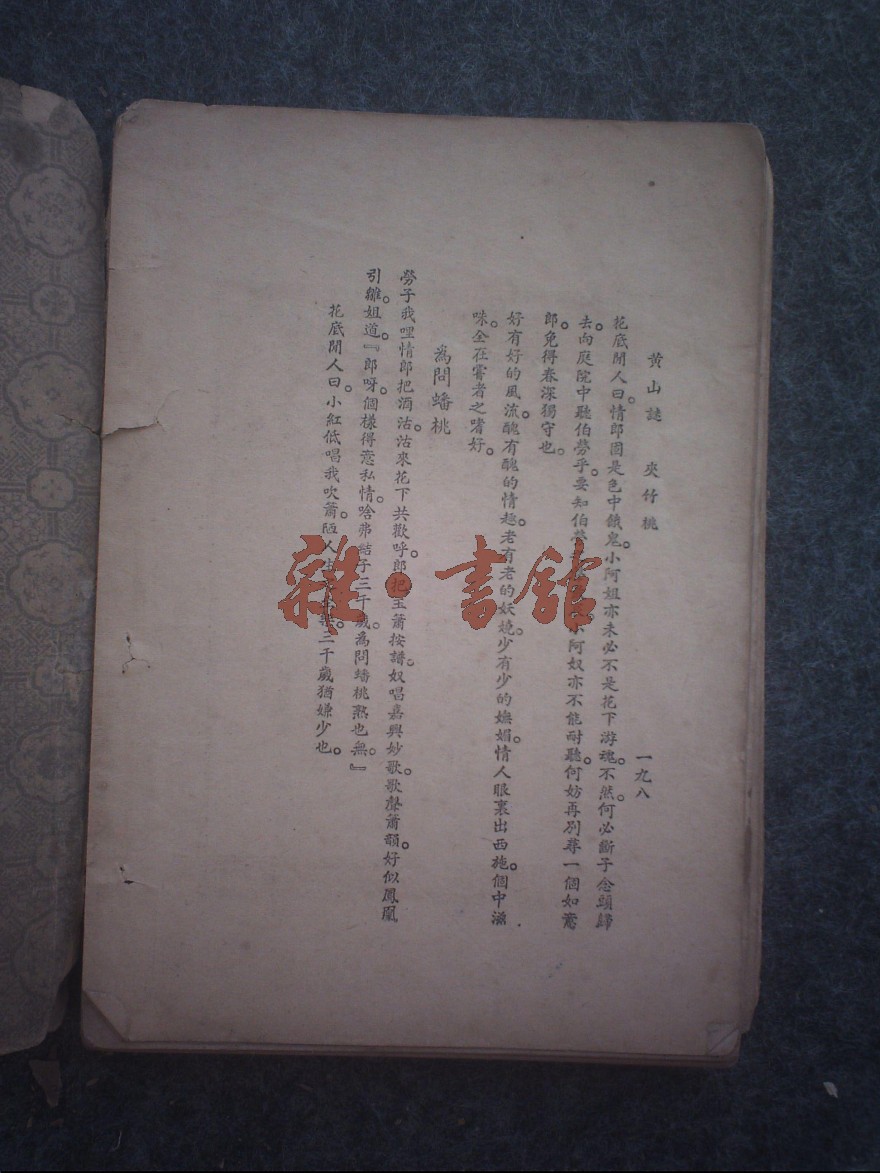 黃山謎　夾竹桃
一九八
花底閒人曰。情郎固是色中餓鬼。小阿姐亦未必不是花下游魂。不然。何必斷子念頭歸
去。向庭院中聽伯勞乎。要知伯勞小阿奴亦不能耐聽。何妨再別尋一個如意
郎。免得春深獨守也。
好有好的風流。醜有醜的情趣。老有老的妖嬈。少有少的嫵媚。情人眼裏出西施。個中滋
味。全在嘗者之嗜好。
爲問蟠桃
勞子我哩情郎把酒沽。沽來花下共歡呼。郎把玉簫按譜。奴唱嘉興妙歌。歌聲簫韻。好似鳳凰
引雛。姐道。『郎呀。個樣得意私情。啥弗結子三千歲。爲問蟠桃熟也無。』
花底閒人曰。小紅低唱我吹簫。陋人生三千歲猶嫌少也。
雜·書館